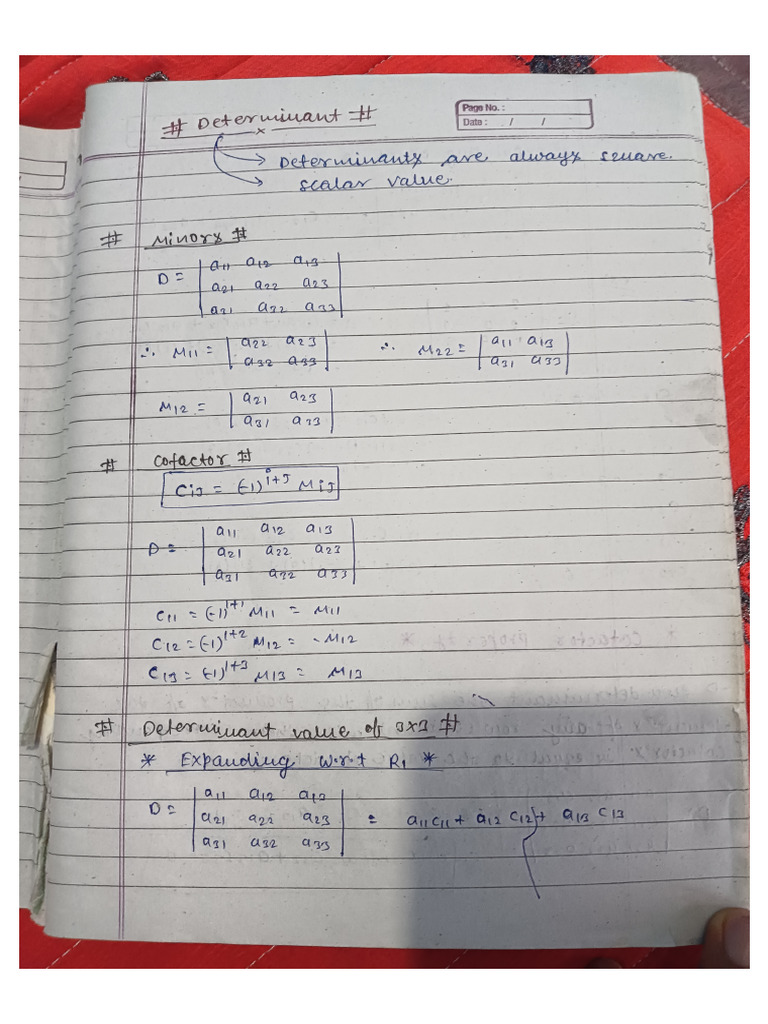 # Determinant #
Page No. :
Date : / /
→ Determinants are always square.
→ scalar value.
# Minors #
D = | a11 a12 a13 |
| a21 a22 a23 |
| a21 a32 a33 |
∴ M11 = | a22 a23 | ∴ M22 = | a11 a13 |
| a32 a33 | | a31 a33 |
M12 = | a21 a23 |
| a31 a33 |
# Cofactor #
Cij = (-1)^i+j Mij
D = | a11 a12 a13 |
| a21 a22 a23 |
| a31 a32 a33 |
C11 = (-1)^1+1 M11 = M11
C12 = (-1)^1+2 M12 = -M12
C13 = (-1)^1+3 M13 = M13
# Determinant value of 3x3 #
* Expanding w.r.t R1 *
D = | a11 a12 a13 |
| a21 a22 a23 | = a11C11 + a12 C12 + a13 C13
| a31 a32 a33 |